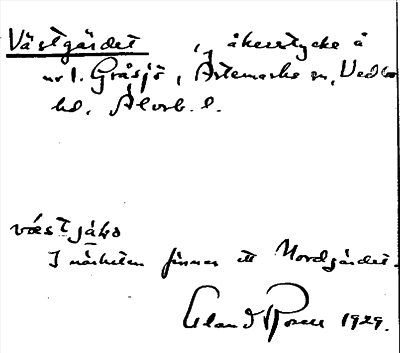 Västgärdet, åkerstycke å
nr 1. Gråsjö, Ärtemarks sn, Vedbo
hd, Älvsb. l.
väst jáḷa
I närheten finnes ett Nordgärdet.
Eland Rosell 1929.